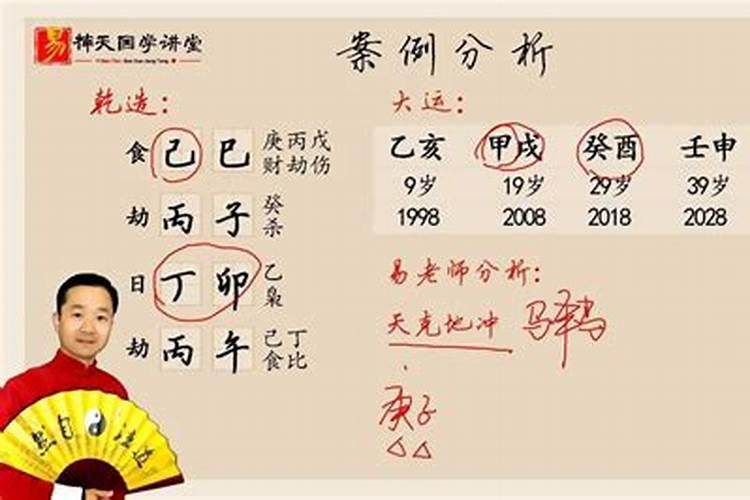 易 天国学讲堂
案例分析
乾造：
食 己 巳 庚丙戊
财劫伤
劫 丙 子 癸
杀
日 丁 卯 乙
枭
劫 丙 午 己丁
食比
大运：
乙亥 甲戌 癸酉 壬申
9岁 19岁 29岁 39岁
1998 2008 2018 2028
易老师分析：
天克地冲
庚子
然自法道